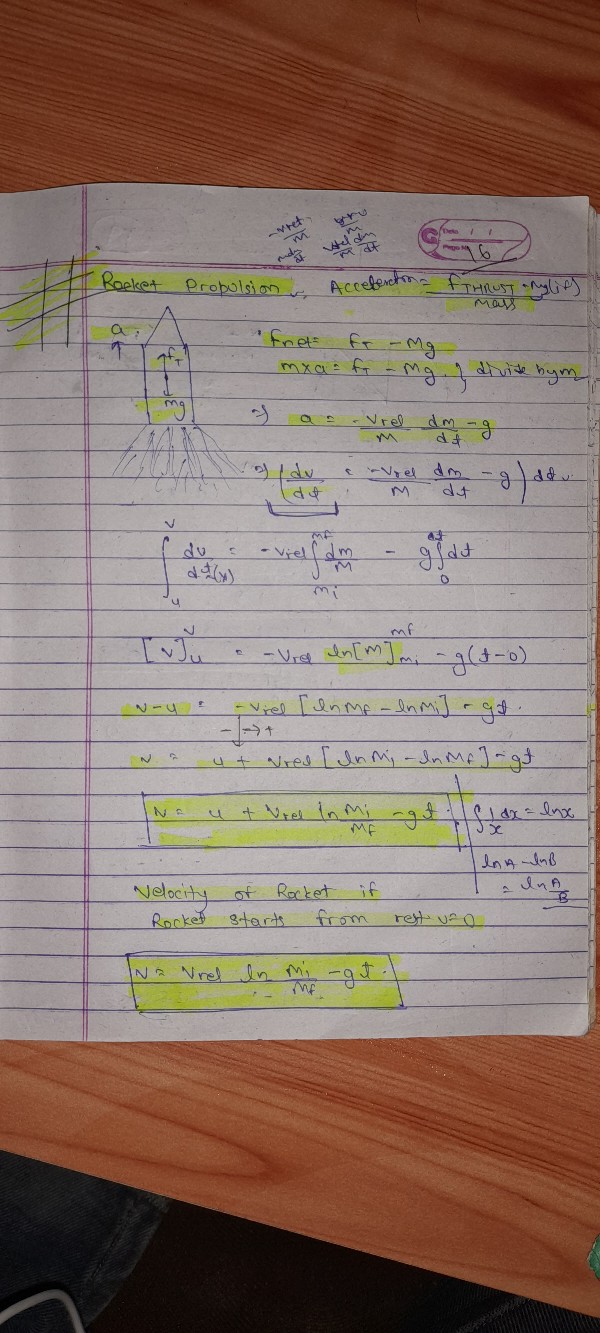 -Vrel
M
dm
dt
Vrel dm
M dt
G
16
Rocket Propulsion
Acceleration = fTHRUST - Mg (if)
mass
a
fT
mg
fnet = fT - Mg
m×a = fT - Mg } divide by m
⇒) a = -Vrel/M dm/dt - g
⇒) (dv/dt = -Vrel/M dm/dt - g) dt
∫_u^v dv = -Vrel ∫_mi^mf dm/M - g ∫_0^t dt
[v]_u^v = -Vrel ln[M]_mi^mf - g(t-0)
v-u = -Vrel [ln Mf - ln Mi] - gt.
- → +
v = u + Vrel [ln Mi - ln Mf] - gt
v = u + Vrel ln Mi/Mf - gt
∫ 1/x dx = ln x
ln A - ln B
= ln A/B
Velocity of Rocket if
Rocket starts from rest u=0
v = Vrel ln Mi/Mf - gt.